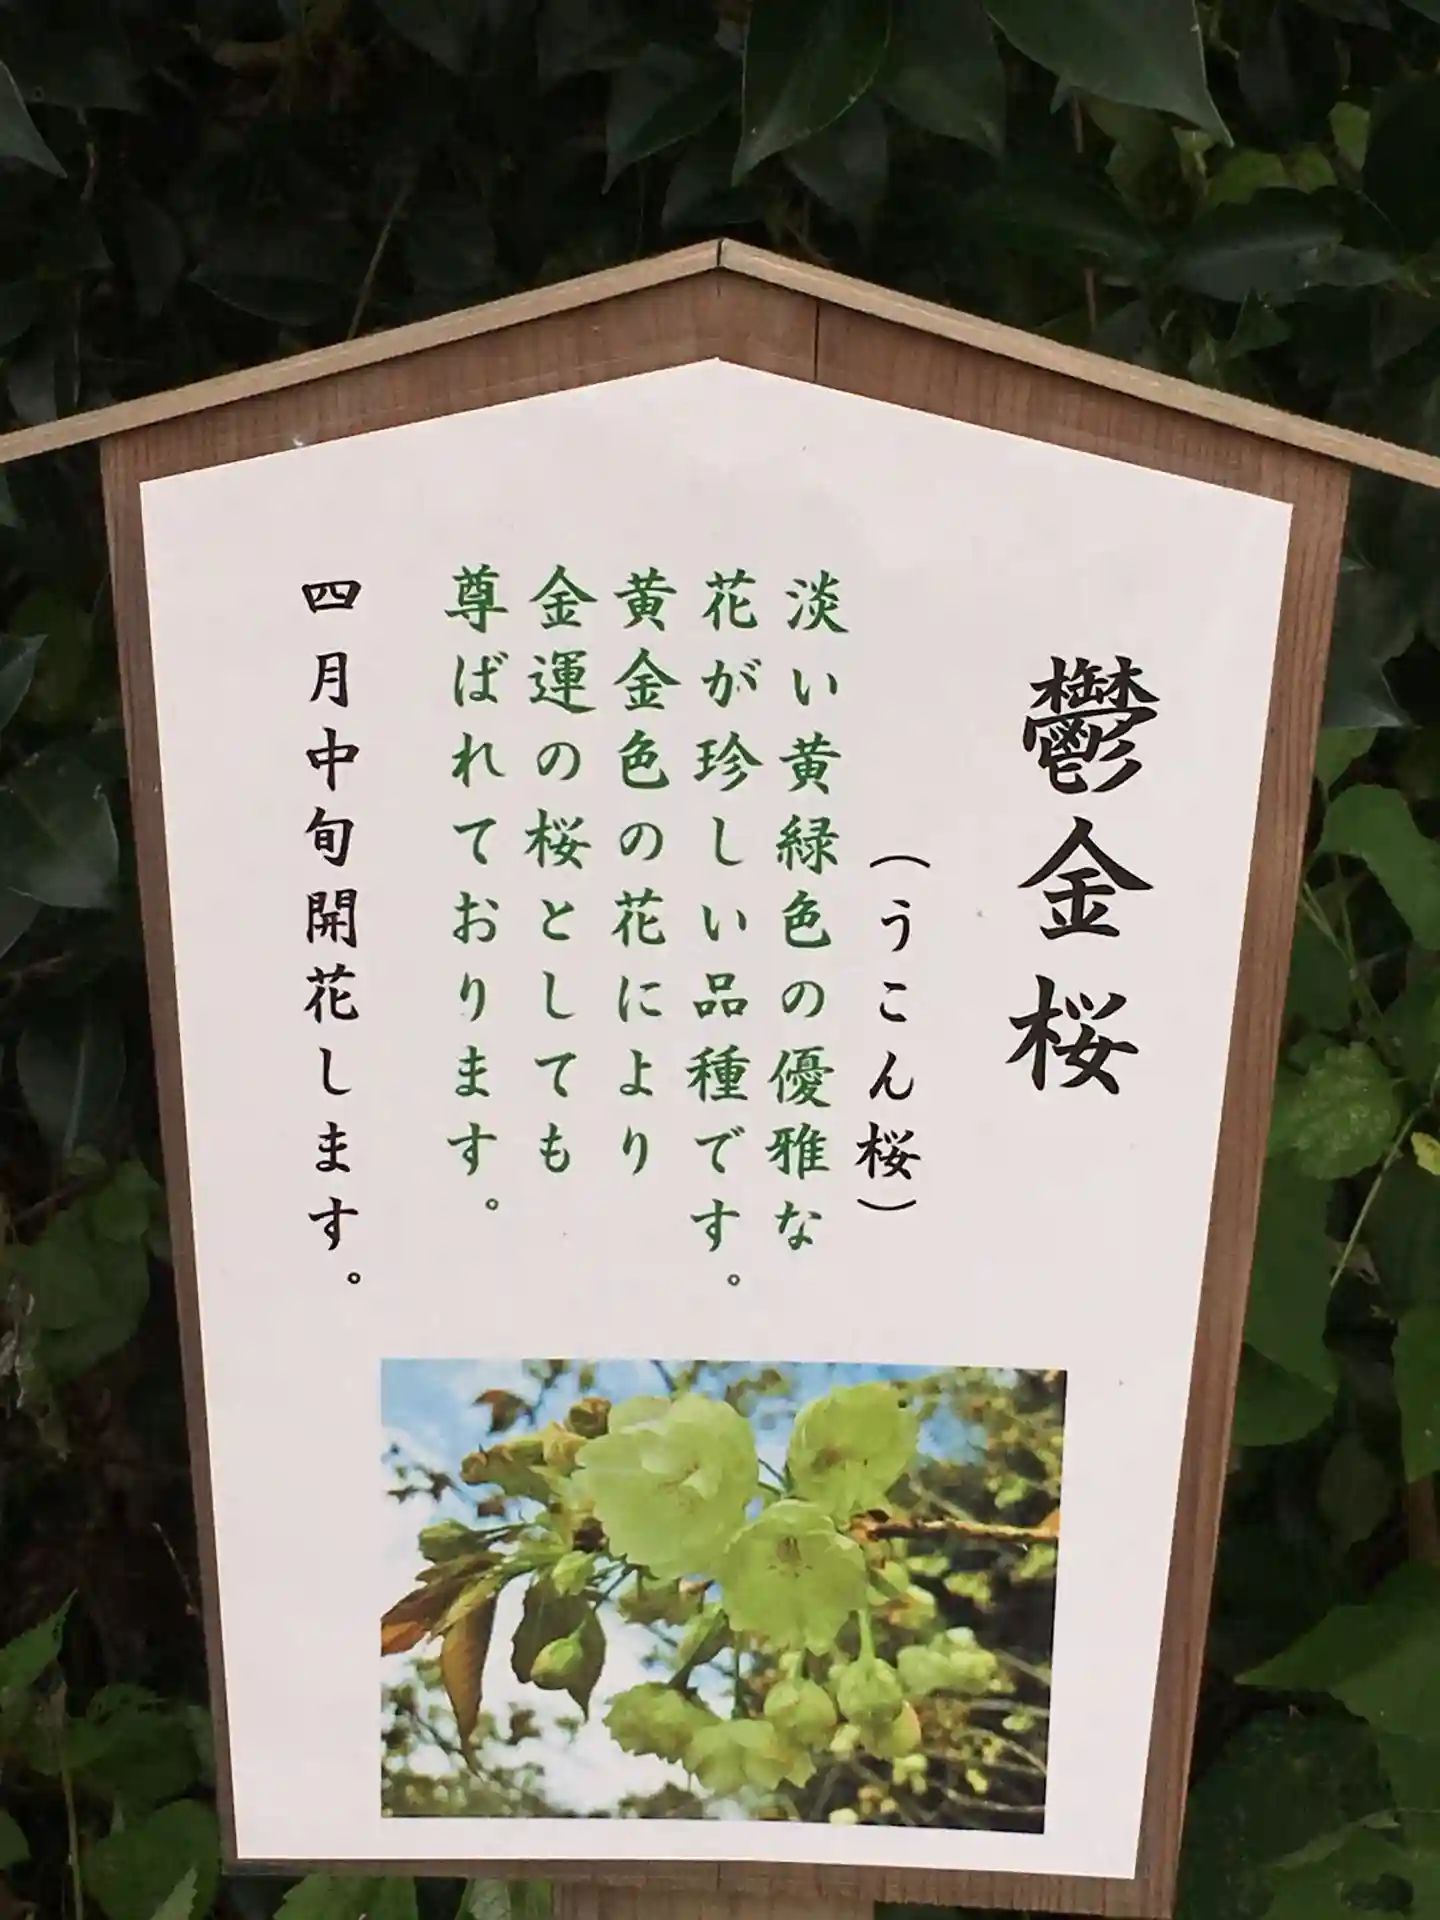 鬱金桜
（うこん桜）
淡い黄緑色の優雅な
花が珍しい品種です。
黄金色の花により
金運の桜としても
尊ばれております。
四月中旬開花します。